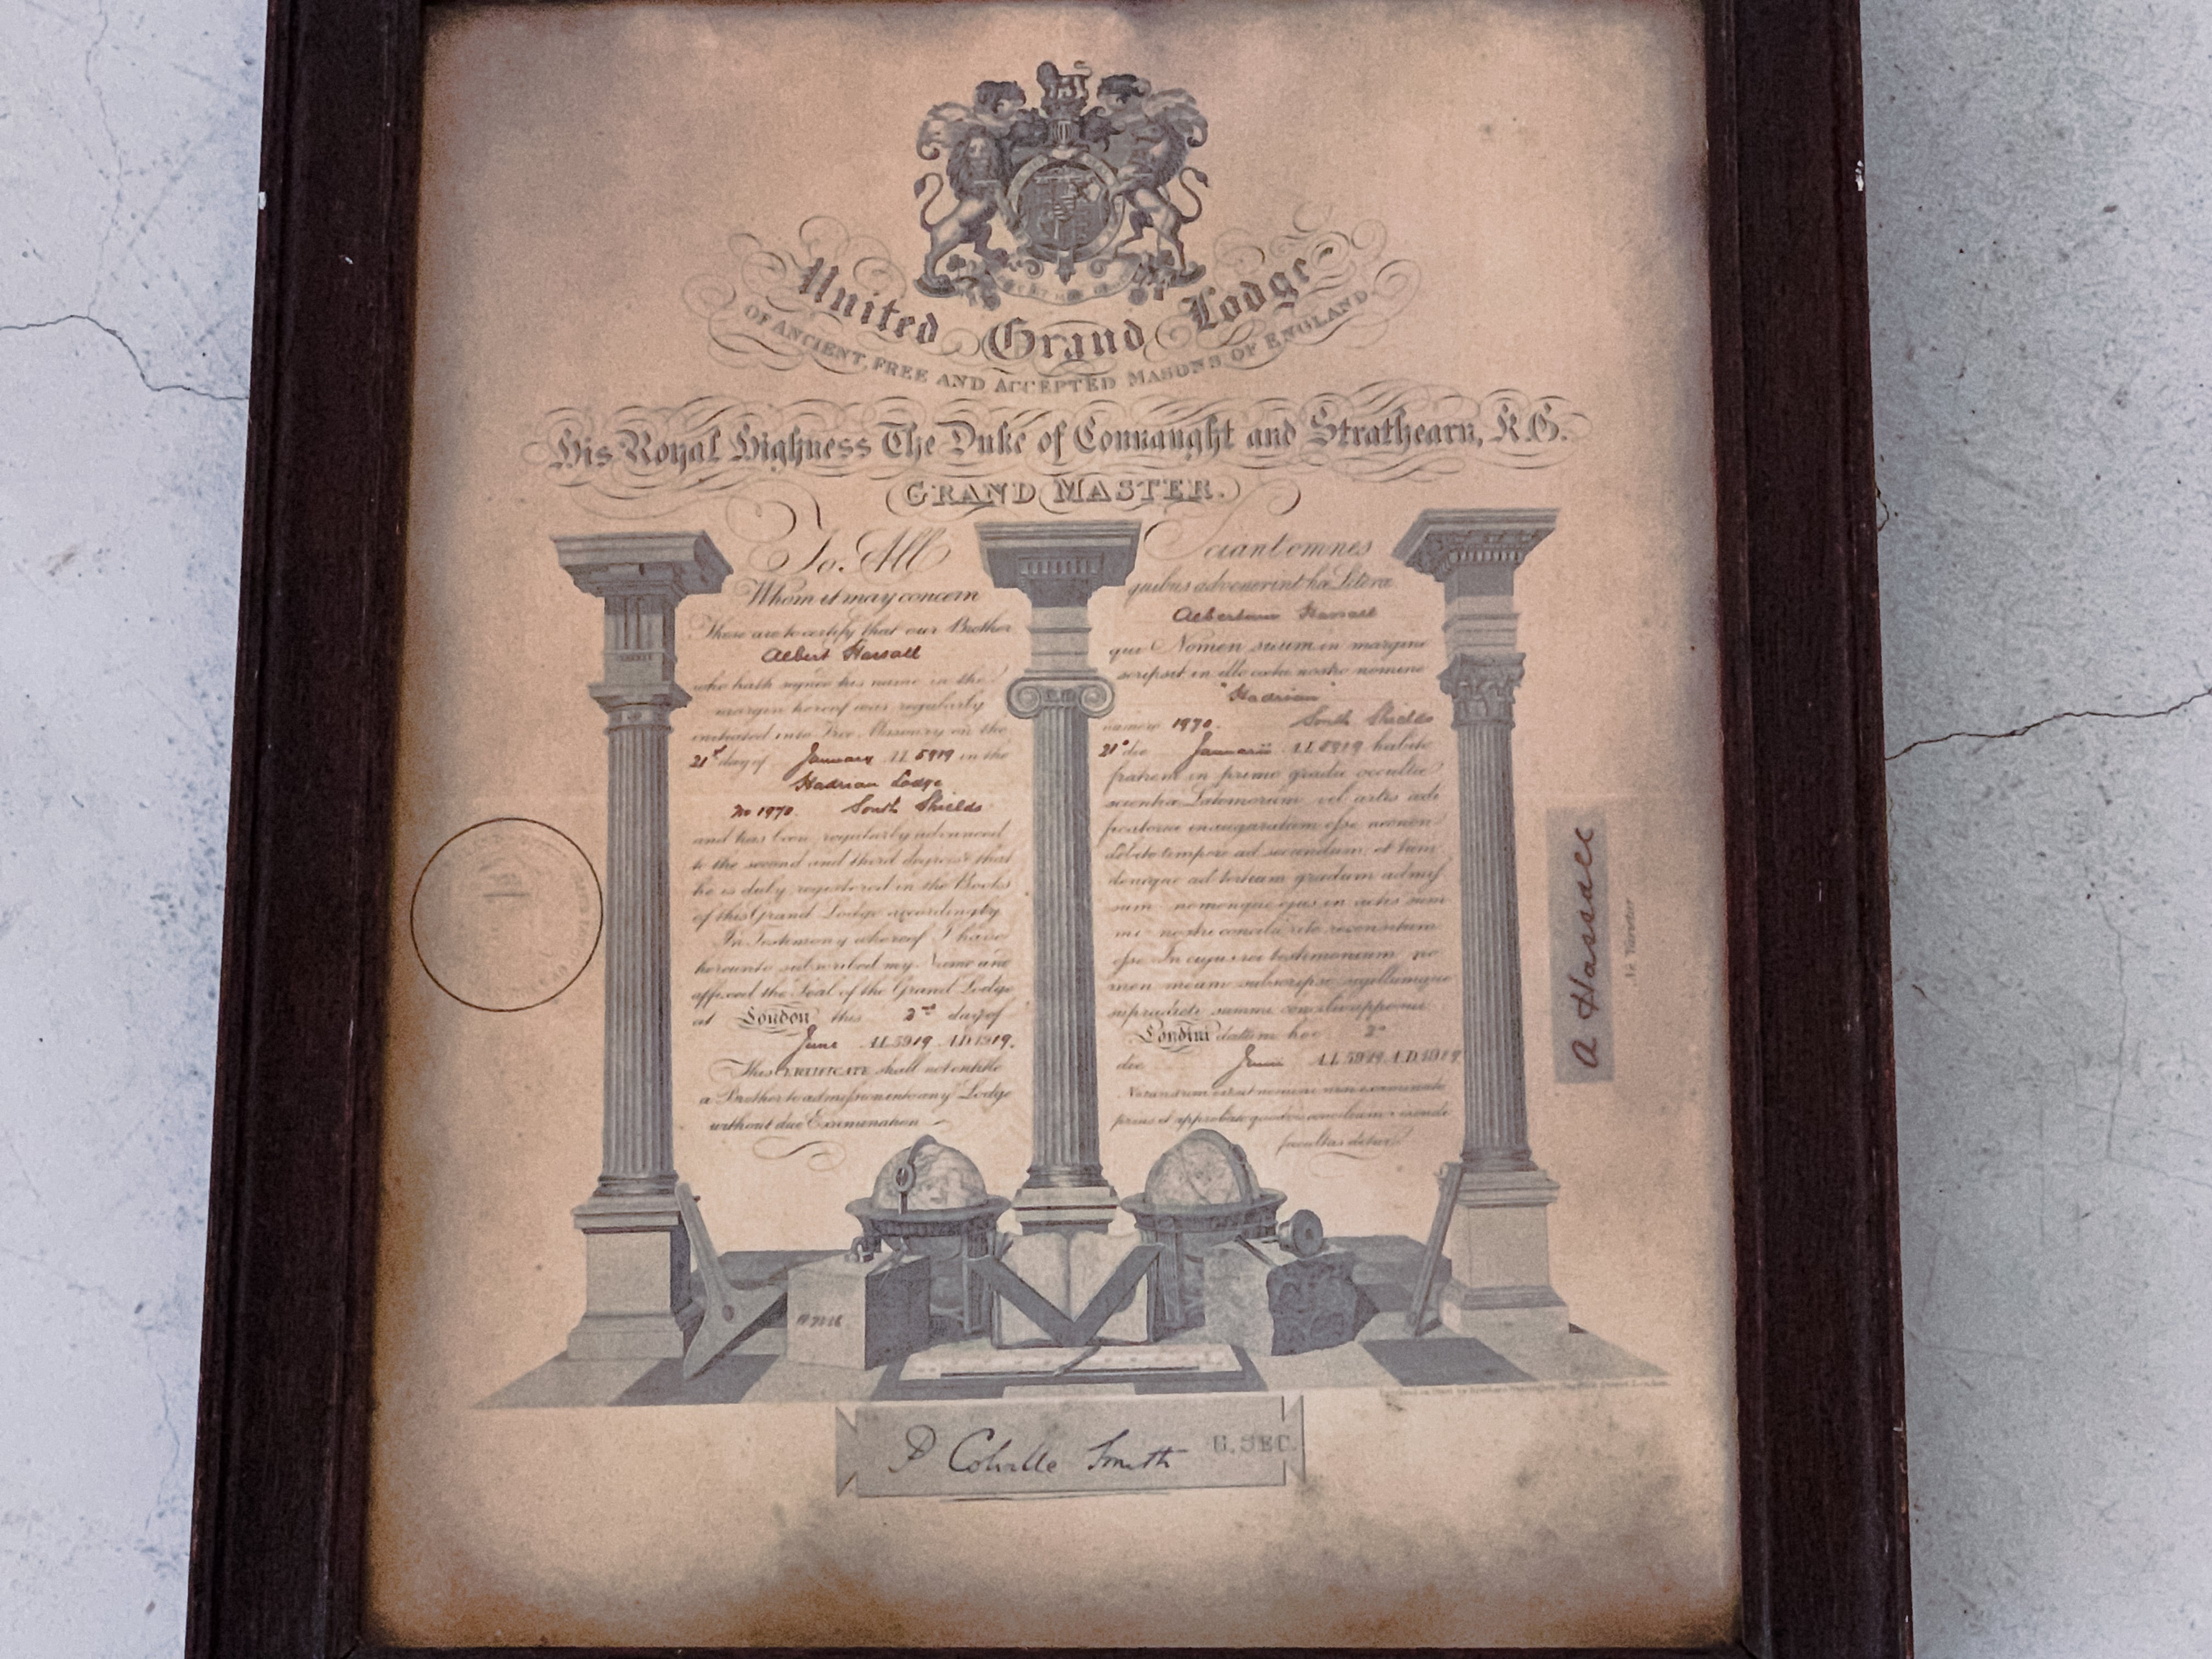 United Grand Lodge
OF ANCIENT, FREE AND ACCEPTED MASONS OF ENGLAND.
His Royal Highness The Duke of Connaught and Strathearn, K.G.
GRAND MASTER.
To All
Whom it may concern
These are to certify that our Brother
Albert Hassall
who hath signed his name in the
margin hereof was regularly
initiated into Free Masonry on the
21st day of January A.L. 5919 in the
Hadrian Lodge
No 1970. South Shields
and has been regularly advanced
to the second and third degrees & that
he is duly registered in the Books
of this Grand Lodge accordingly
In Testimony whereof I have
hereunto subscribed my Name and
affixed the Seal of the Grand Lodge
at London this 2nd day of
June A.L. 5919. A.D. 1919.
This CERTIFICATE shall not entitle
a Brother to admission into any Lodge
without due Examination
Sciant omnes
quibus advenerint hæ Literæ
Albertum Hassall
qui Nomen suum in margine
scripsit in illo cœtu nostro nomine
"Hadrian"
numero 1970. South Shields
21º die Januarii A.L. 5919 habito
fratrem in primo gradu occultæ
scientiæ Latomorum vel artis ædi
ficatoriæ inauguratum esse necnon
debito tempore ad secundum et tum
denique ad tertium gradum admis
sum nomenque ejus in actis sum
mi nostri concilii rite recensitum
esse. In cujus rei testimonium no
men meum subscripsi sigillumque
supradicti summi concilii apposui
Londini datum hoc 2º
die Junii A.L. 5919. A.D. 1919
facultas detur
A Hassall
Ne Varietur
P Colville Smith G. SEC.